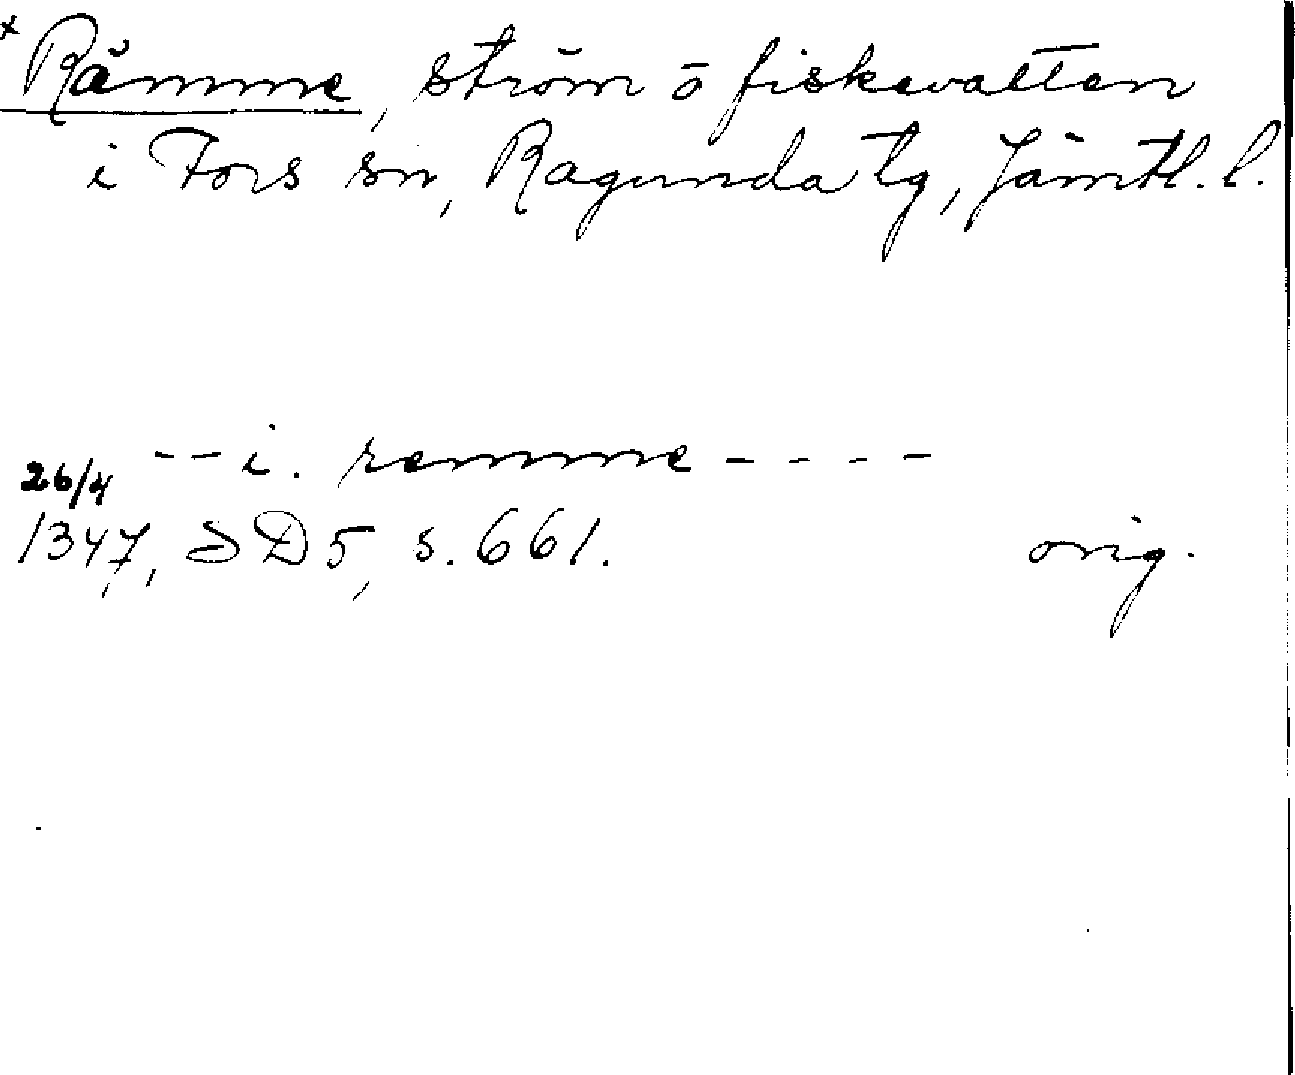 x Rämme, ström o fiskevatten
i Fors sn, Ragunda tg, Jämtl. l.
- - i. remme - - - -
26/4
1347, SD5, s. 661. orig.